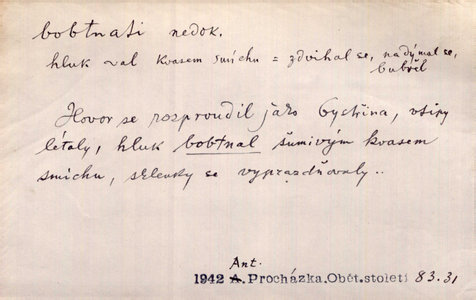 bobtnati nedok.
hluk val kvasem smíchu = zdvihal se, nadýmal se,
bubřel
Hovor se rozproudil jako bystřina, vtipy
létaly, hluk bobtnal šumivým kvasem
smíchu, sklenky se vyprazdňovaly..
Ant.
1942 A. Procházka.Obět.století 83.31